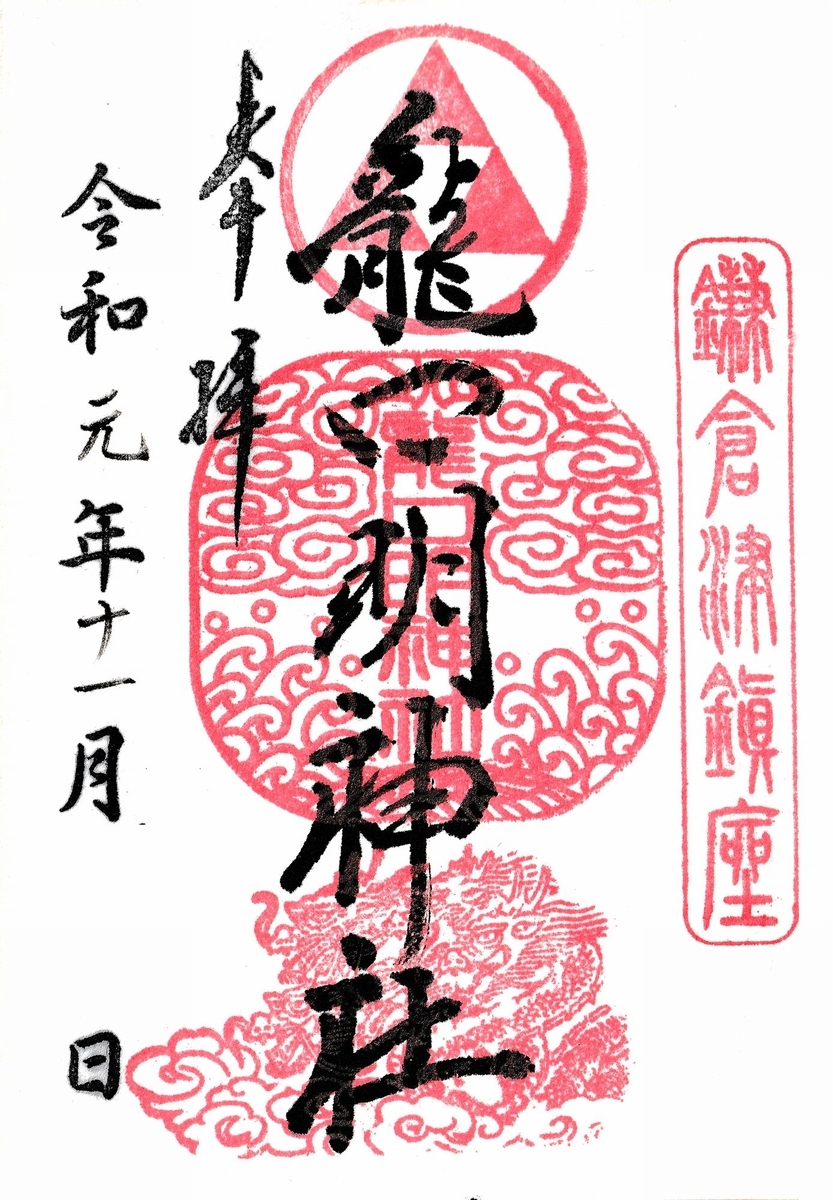 鎌倉津鎮座
龍口明神社
龍口明神社
奉拝
令和元年十一月 日